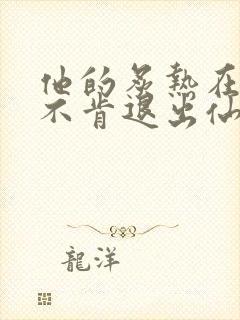 他的炙熱在
不肯退出仙
龍洋